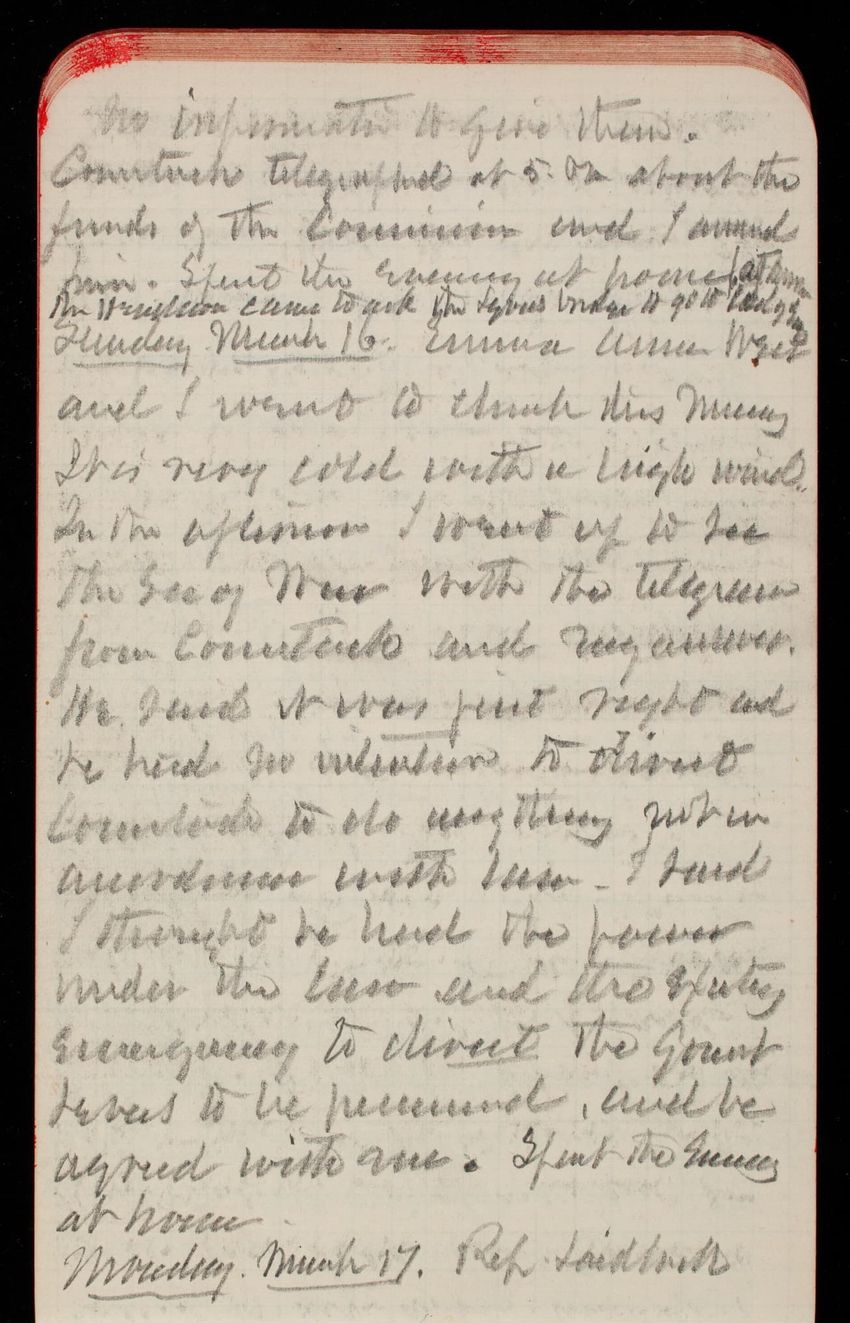 no information to give them.
Comstock telegraphed at 5. about the
funds of the Commission and I answered
him. Spent the Evening at home
came to ask the bridge to go to
Sunday March 16. Emma Anna
and I went to church this Morning
It is very cold with a high wind.
In the afternoon I went up to see
the Secy War with the telegram
from Comstock and my answer.
He said it was just right and
he had no intention to direct
Comstock to do anything not in
accordance with law - I said
I thought he had the power
under the law and the
Emergency to direct the Gount
levees to be , and he
agreed with me. Spent the Evening
at home
Monday. March 17. Rep Laidlaw